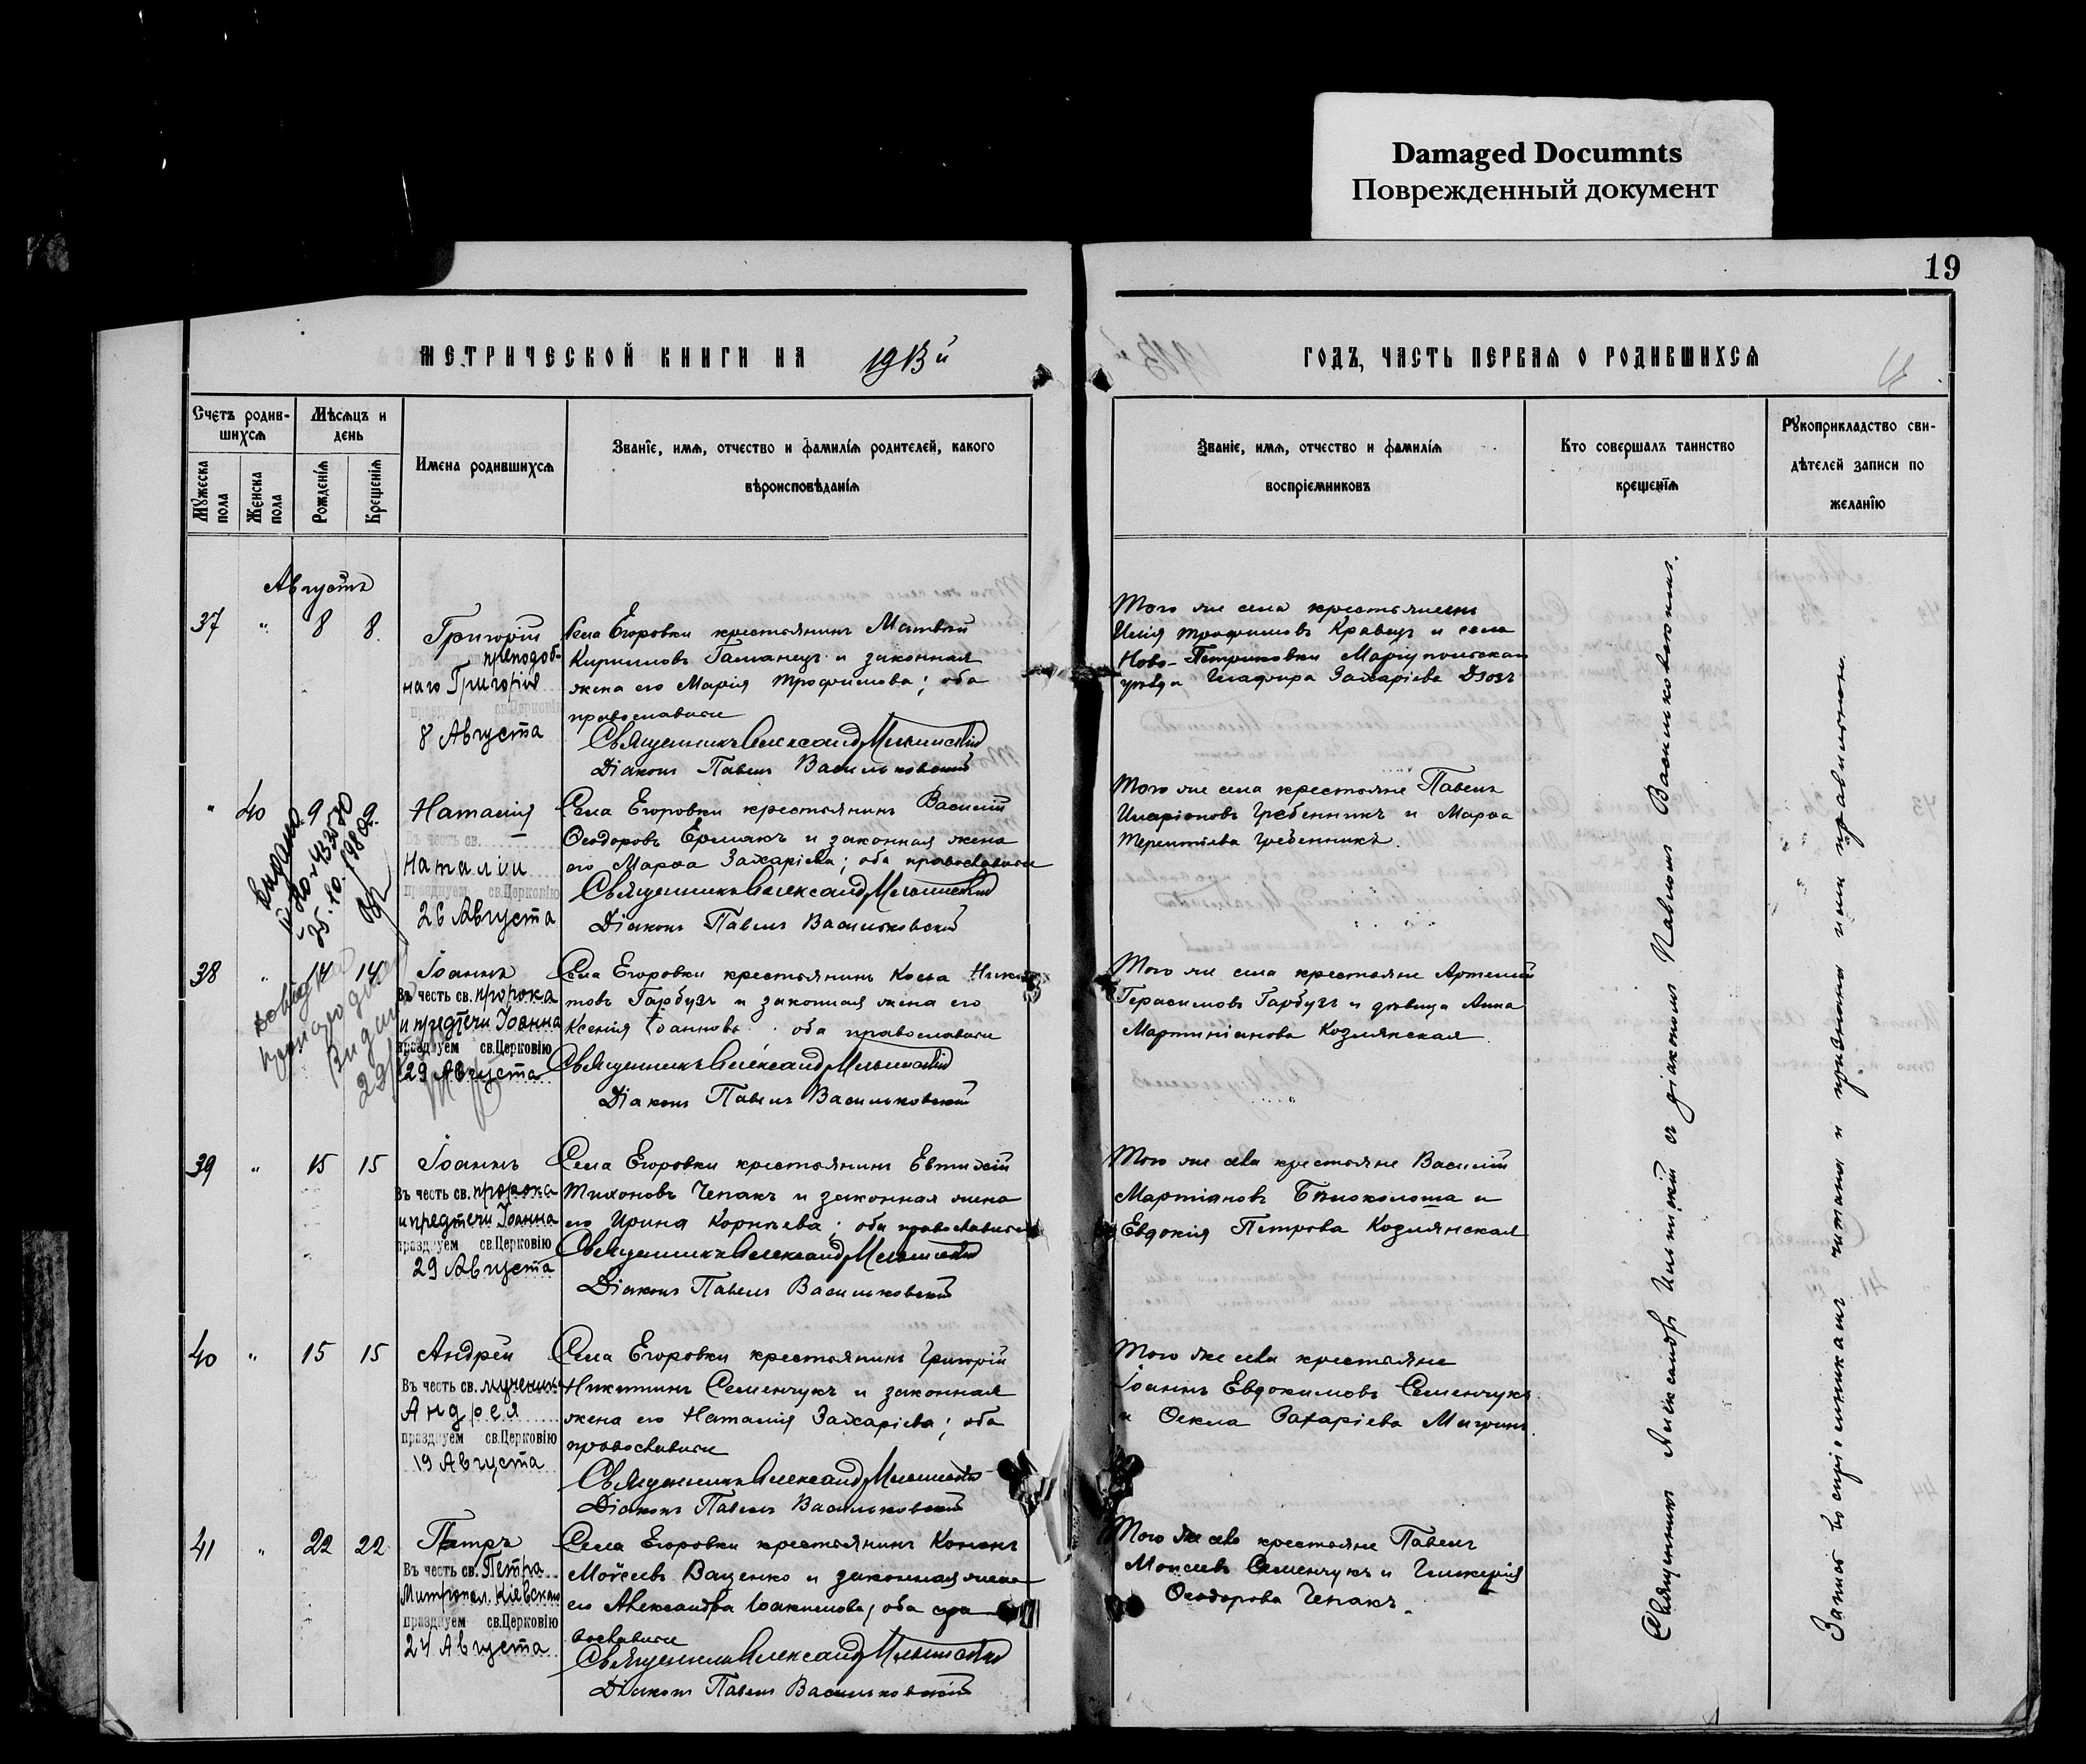 Damaged Documnts
Поврежденный документ
19
МЕТРИЧЕСКОЙ КНИГИ НА 1913 й
ГОДЪ, ЧАСТЬ ПЕРВАЯ О РОДИВШИХСЯ
Счетъ родив-
шихся
Мѣсяцъ и
день
Мужеска пола
Женска пола
Рожденія
Крещенія
Имена родившихся
Званіе, имя, отчество и фамилія родителей, какого
вѣроисповѣданія
Званіе, имя, отчество и фамилія
воспріемниковъ
Кто совершалъ таинство
крещенія
Рукоприкладство сви-
дѣтелей записи по
желанію
Августъ
37 " 8 8.
Григорій
преподоб-
наго Григорія
8 Августа
Села Егоровки крестьянинъ Матвѣй
Кирилловъ Гаманецъ и законная
жена его Марія Трофимова; оба
православные
Священникъ Александръ
Діаконъ Павелъ Васильковскій
Того же села крестьянинъ
Илія Трофимовъ Кравецъ и села
Ново-Петриковки Маріупольскаго
уѣзда Захаріева
" 40 9 9.
Выдано
25.10.
Наталія
Въ честь св.
Наталіи
празднуем св.Церковію
26 Августа
Села Егоровки крестьянинъ Василій
Ѳеодоровъ Ермакъ и законная жена
его Марѳа Захаріева; оба православные
Священникъ Александръ
Діаконъ Павелъ Васильковскій
Того же села крестьяне Павелъ
Иларіоновъ Гребенникъ и Марѳа
Терентіева Гребенникъ.
38 " 14 14
Іоаннъ
Въ честь св. пророка
и предтечи Іоанна
празднуем св.Церковію
29 Августа
Села Егоровки крестьянинъ Косма Ники-
товъ Гарбузъ и законная жена его
Ксенія Іоаннова оба православные
Священникъ Александръ
Діаконъ Павелъ Васильковскій
Того же села крестьяне Артемій
Герасимовъ Гарбузъ и дѣвица Анна
Мартиніанова Козлянская
39 " 15 15
Іоаннъ
Въ честь св. пророка
и предтечи Іоанна
празднуем св.Церковію
29 Августа
Села Егоровки крестьянинъ Евтихій
Тихоновъ Чепакъ и законная жена
его Ирина Корнѣева; оба православные
Священникъ Александръ
Діаконъ Павелъ Васильковскій
Того же села крестьяне Василій
Мартіановъ Бѣлоколоша и
Евдокія Петрова Козлянская
40 " 15 15
Андрей
Въ честь св. мученика
Андрея
празднуем св.Церковію
19 Августа
Села Егоровки крестьянинъ Григорій
Никитинъ Семенчукъ и законная
жена его Наталія Захаріева; оба
православные
Священникъ Александръ
Діаконъ Павелъ Васильковскій
Того же села крестьяне
Іоаннъ Евдокимовъ Семенчукъ
и Ѳекла Захаріева
41 " 22 22
Петръ
Въ честь св. Петра
Митропол. Кіевскаго
празднуем св.Церковію
24 Августа
Села Егоровки крестьянинъ Кононъ
Моѵсеевъ Ващенко и законная жена
его Александра Іоакимова; оба пра-
вославные
Священникъ Александръ
Діаконъ Павелъ Васильковскій
Того же села крестьяне Павелъ
Моисеевъ Семенчукъ и Гликерія
Ѳеодорова Чепакъ.
Священникъ Александръ съ діакономъ Павломъ Васильковскимъ.
Запись воспріемникамъ читана и признана ими правильною.